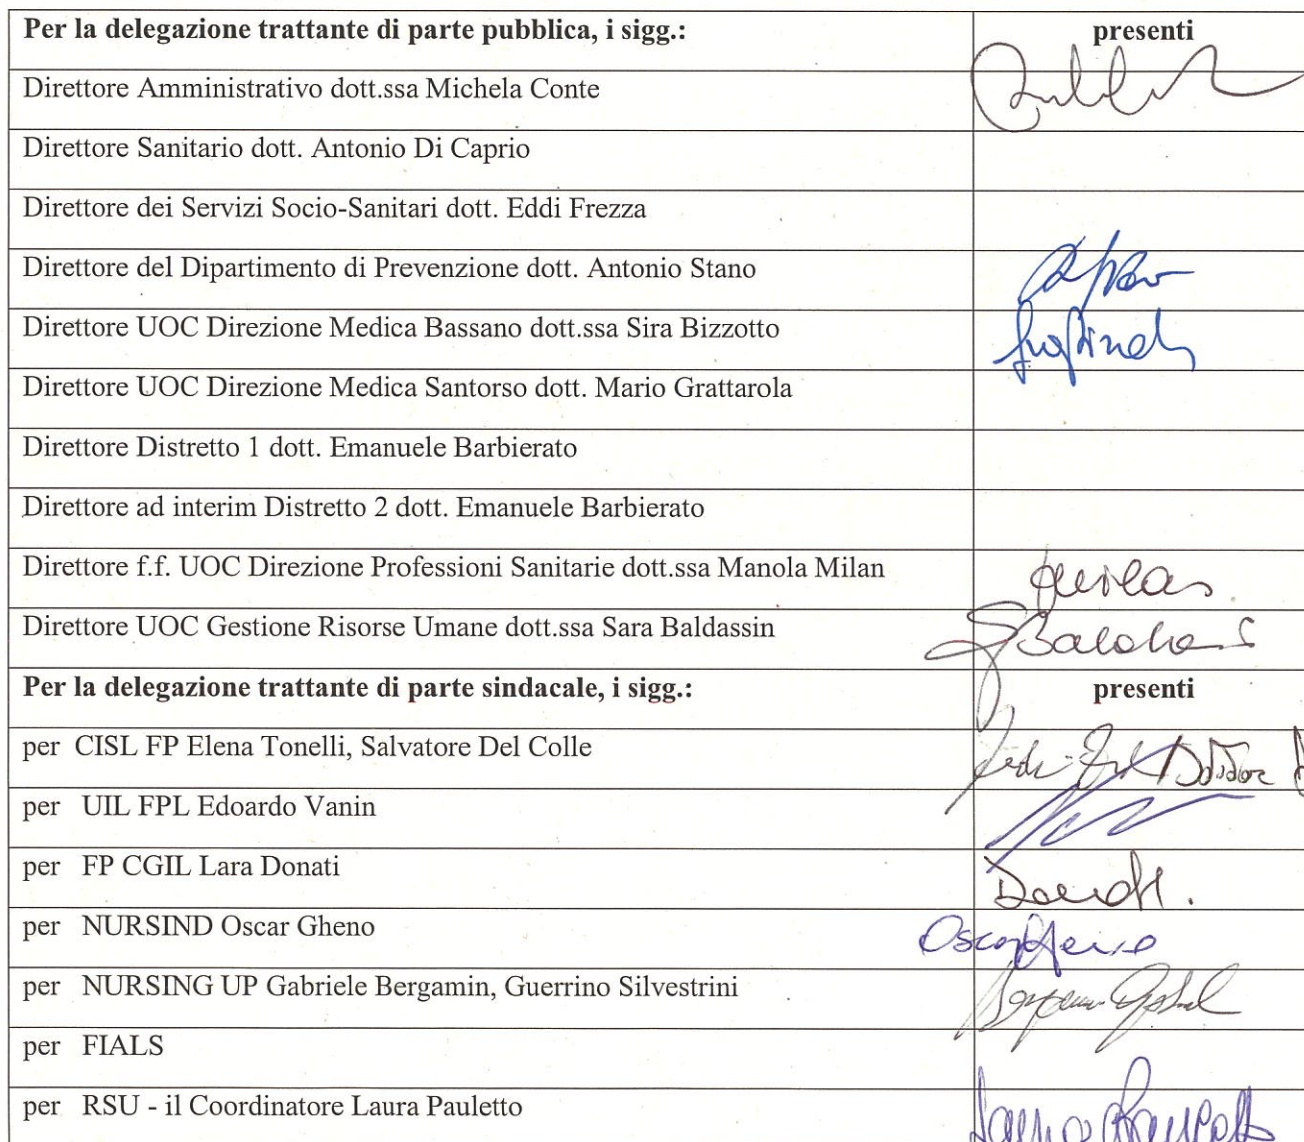 Per la delegazione trattante di parte pubblica, i sigg.: presenti
Direttore Amministrativo dott.ssa Michela Conte
Direttore Sanitario dott. Antonio Di Caprio
Direttore dei Servizi Socio-Sanitari dott. Eddi Frezza
Direttore del Dipartimento di Prevenzione dott. Antonio Stano
Direttore UOC Direzione Medica Bassano dott.ssa Sira Bizzotto
Direttore UOC Direzione Medica Santorso dott. Mario Grattarola
Direttore Distretto 1 dott. Emanuele Barbierato
Direttore ad interim Distretto 2 dott. Emanuele Barbierato
Direttore f.f. UOC Direzione Professioni Sanitarie dott.ssa Manola Milan
Direttore UOC Gestione Risorse Umane dott.ssa Sara Baldassin
Per la delegazione trattante di parte sindacale, i sigg.: presenti
per CISL FP Elena Tonelli, Salvatore Del Colle
per UIL FPL Edoardo Vanin
per FP CGIL Lara Donati
per NURSIND Oscar Gheno
per NURSING UP Gabriele Bergamin, Guerrino Silvestrini
per FIALS
per RSU - il Coordinatore Laura Pauletto